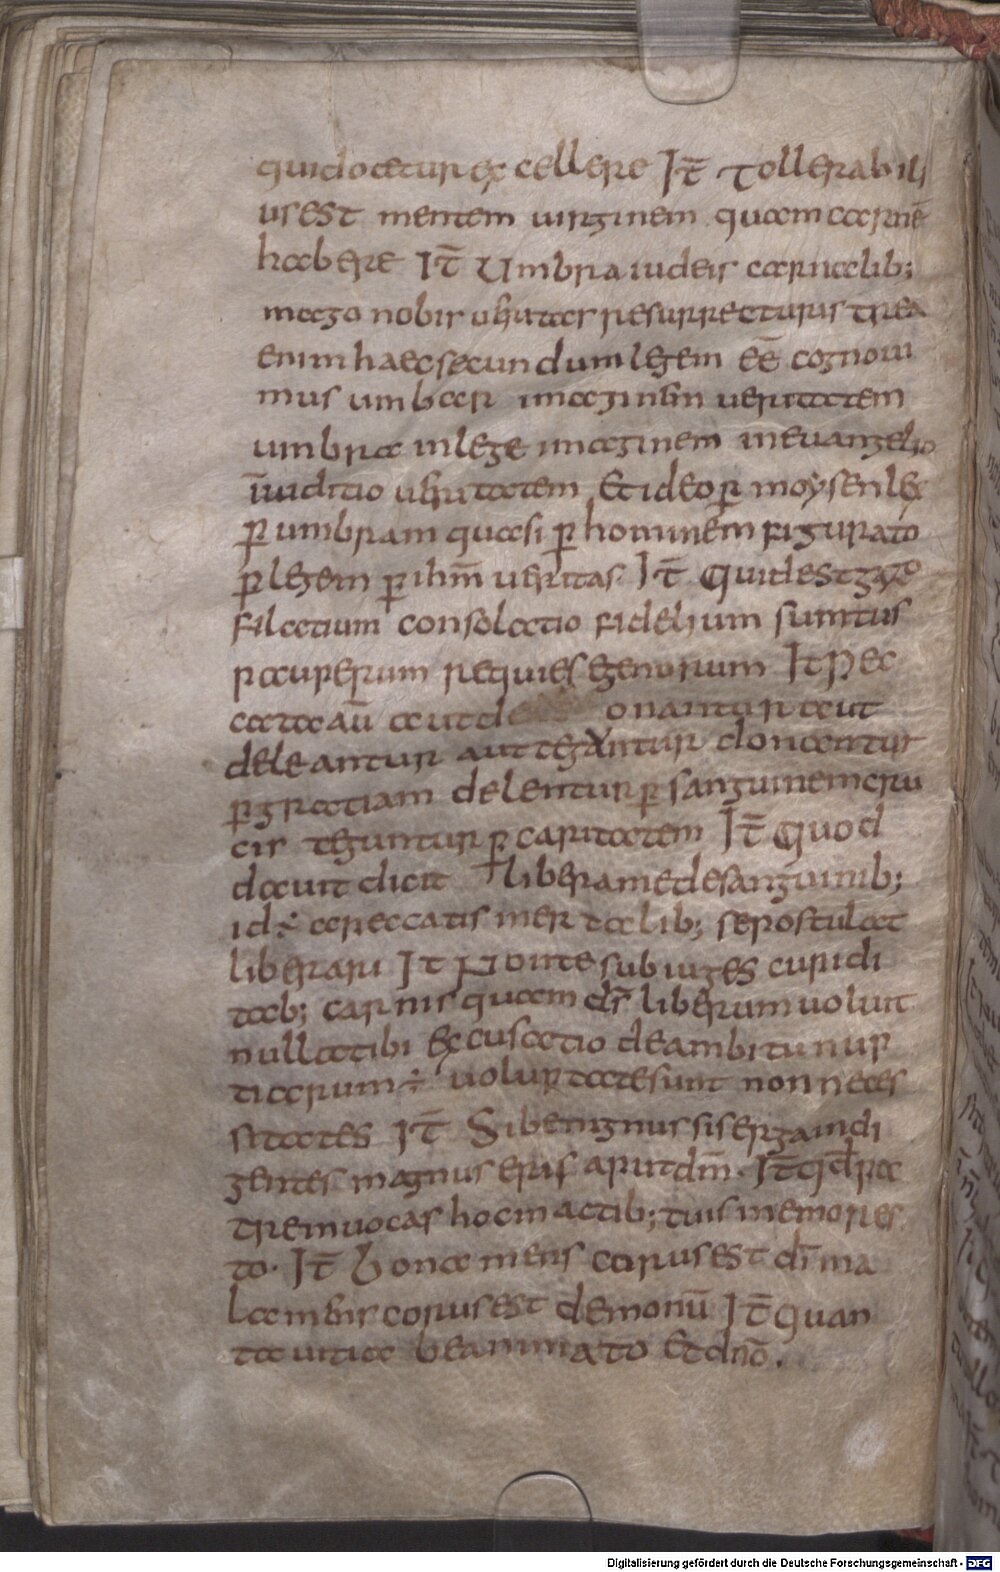 qui docetur excellere It̄ Tollerabili
us est mentem uirginem quam carnē
habere It̄ Umbra iudeis carnalib;
imago nobis ueritas resurrecturis tria
enim haec secundum legem eē cognoui
mus umbar imaginem ueritatem
umbra in lege imaginem in euangelio
in iuditio ueritatem Et ideo p̄ moysen lex
p̄ umbram quasi p̄ hominem figurato
p̄ legem p̄ ihm̄ ueritas. It̄ Quid est gazo
filatium consolatio fidelium sumtus
pauperum requies egenorum It Pec
cata aū aut d onantur aut
deleantur aut tegantur donantur
p̄ gratiam delentur p̄ sanguinem cru
cis teguntur p̄ caritatem It̄ Quod
dauit dicit libera me de sanguinib;
id ÷ a peccatis mortalib; se postulat
liberari It Ponite sub iuges cupidi
tatb; carnis quam ds̄ liberum uoluit
nulla tibi excusatio de ambitu nup
tiarum ÷ uoluptates sunt non neces
sitates It̄ Si benignus sis erga indi
gentes magnus eris aput dm̄. It̄ qd pa
trem uocas hoc in actib; tuis memor es
to. It̄ Bona mens carus est dī ma
la mens corus est demonū It̄ Quan
ta uitia beanimato Et dn̄o.
Digitalisierung gefördert durch die Deutsche Forschungsgemeinschaft - DFG